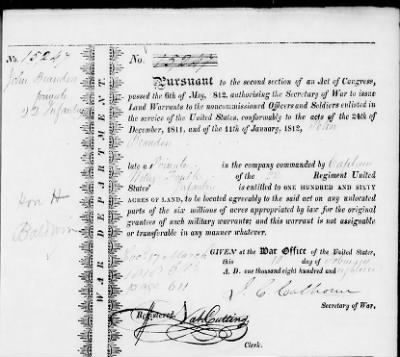 No. 15247
John Brandon
private
22 Infantry
Hon H
Baldwin
WAR DEPARTMENT
No. 15247
Pursuant to the second section of an Act of Congress,
passed the 6th of May, 1812, authorising the Secretary of War to issue
Land Warrants to the noncommissioned Officers and Soldiers enlisted in
the service of the United States, conformably to the acts of the 24th of
December, 1811, and of the 11th of January, 1812, John
Brandon
late a Private in the company commanded by Captain
of the 22 Regiment United
States' Infantry is entitled to ONE HUNDRED AND SIXTY
ACRES OF LAND, to be located agreeably to the said act on any unlocated
parts of the six millions of acres appropriated by law for the original
grantees of such military warrants; and this warrant is not assignable
or transferable in any manner whatever.
GIVEN at the War Office of the United States,
this day of
A. D. one thousand eight hundred and eighteen
J. C. Calhoun
Secretary of War.
page 611
Registered, Nat Cutting
Clerk.